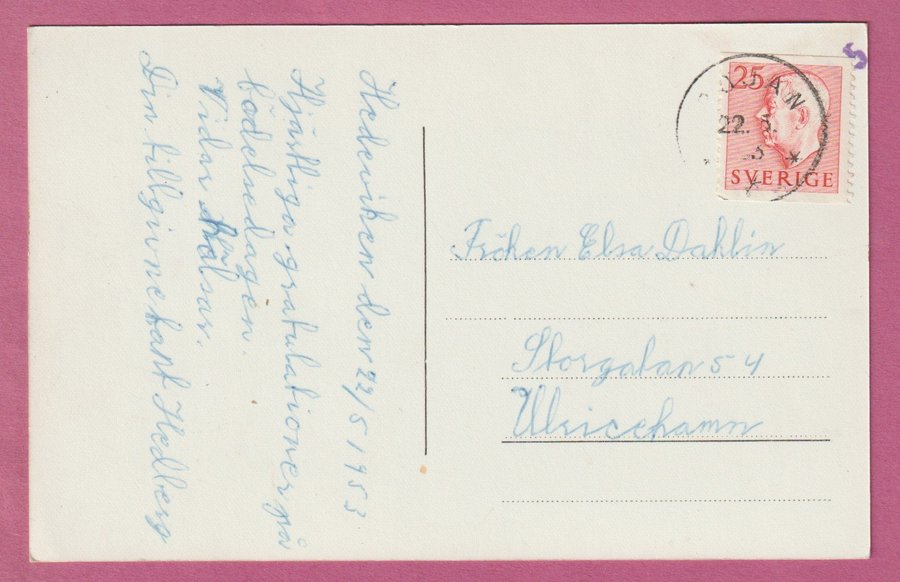 Hedeviken den 22/5 1953
Hjärtliga gratulationer på
födelsedagen.
Vidar hälsar.
Din tillgivne tant Hedberg
25
SVERIGE
22. 5.
Fröken Elsa Dahlin
Storgatan 54
Ulricehamn
5